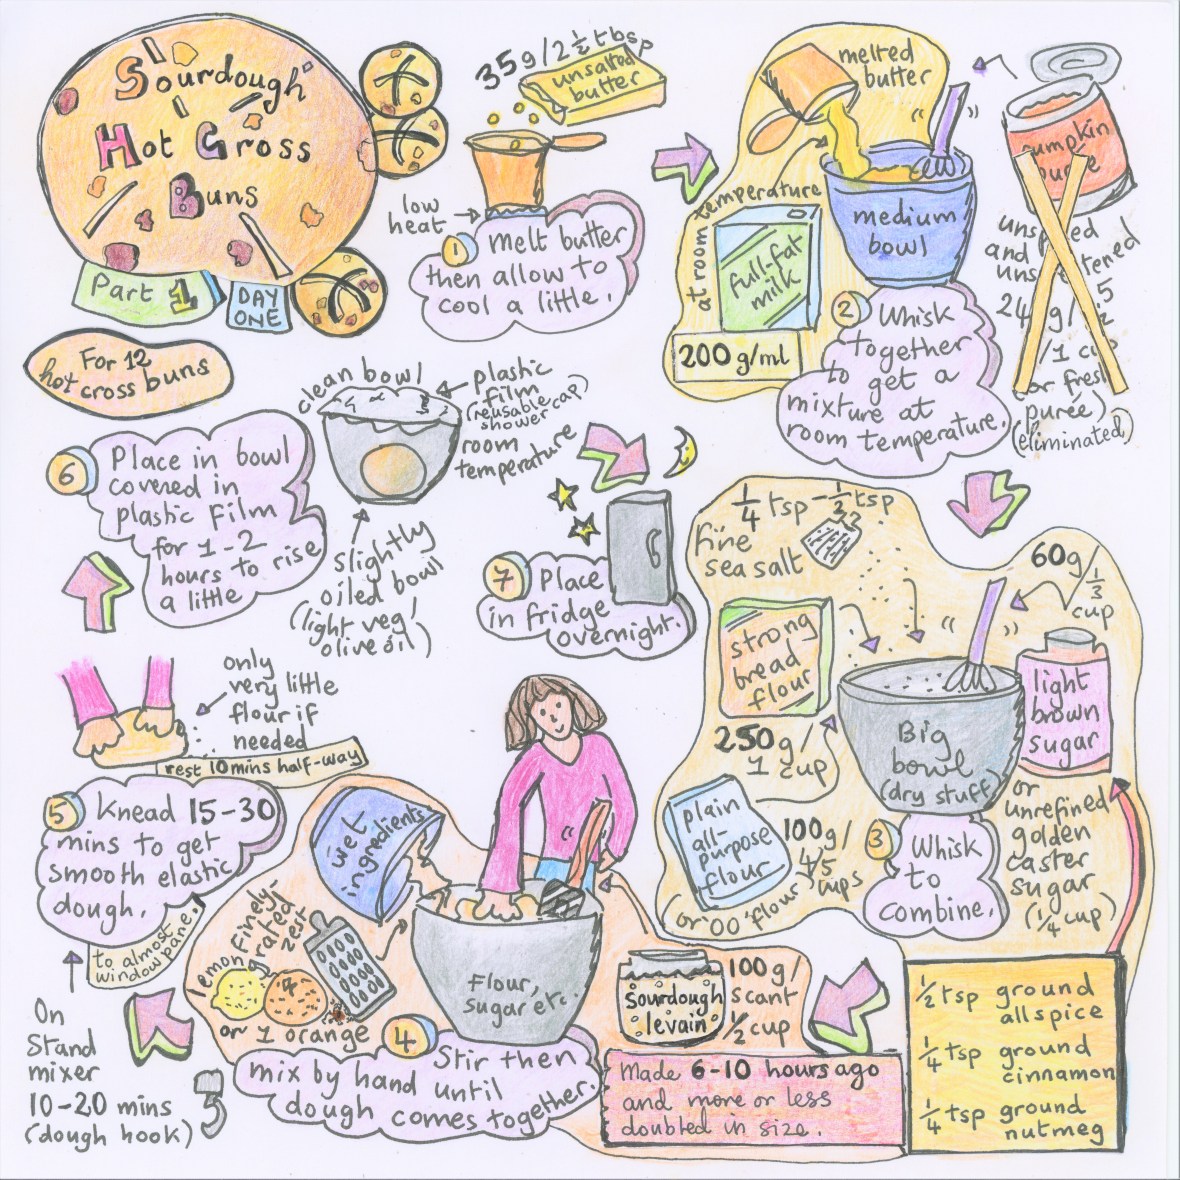 Sourdough
Hot Cross
Buns
Part 1
DAY
ONE
For 12
hot cross buns
35g/2½ tbsp
unsalted
butter
low
heat
1 melt butter
then allow to
cool a little.
melted
butter
at room temperature
full-fat
milk
200 g/ml
medium
bowl
2 Whisk
together
to get a
mixture at
room temperature.
pumpkin
purée
and
/1 cup
or fresh
purée)
(eliminated)
¼ tsp - ½ tsp
fine
sea salt
strong
bread
flour
250g/
1 cup
plain
all-
purpose
flour
100g/
4/5
cups
(or '00' flour)
60g/⅓
cup
light
brown
sugar
or
unrefined
golden
caster
sugar
(¼ cup)
Big
bowl
(dry stuff)
3 Whisk
to
combine.
½ tsp ground
allspice
¼ tsp ground
cinnamon
¼ tsp ground
nutmeg
sourdough
levain
100g/
scant
½ cup
Made 6-10 hours ago
and more or less
doubled in size.
wet
ingredients
finely-
grated
zest
lemon
or 1 orange
Flour,
sugar etc.
4 Stir then
mix by hand until
dough comes together.
only
very little
flour if
needed
rest 10mins half-way
5 Knead 15-30
mins to get
smooth elastic
dough.
to almost
windowpane.
On
Stand
mixer
10-20 mins
(dough hook)
6 Place in bowl
covered in
plastic film
for 1-2
hours to rise
a little
clean bowl
plastic
film
(reusable
shower cap)
room
temperature
slightly
oiled bowl
(light veg/
olive oil)
7 Place
in fridge
overnight.